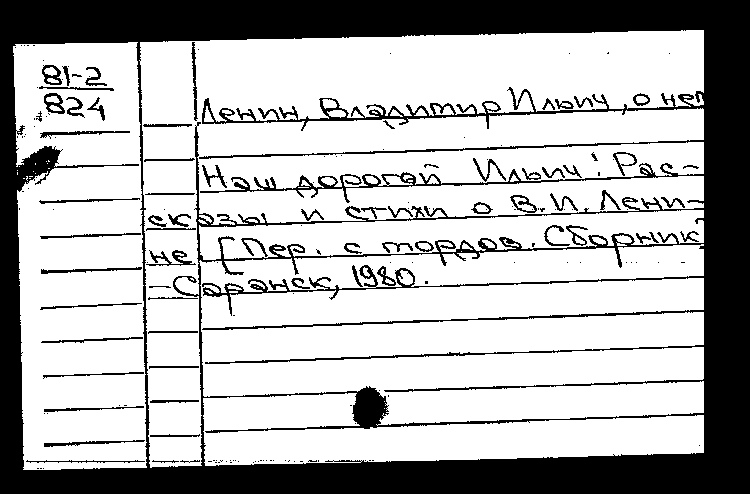 81-2
824
Ленин, Владимир Ильич, о нем
Наш дорогой Ильич! Рас-
сказы и стихи о В.И. Лени-
не [Пер. с мордов. Сборник]
-Саранск, 1980.